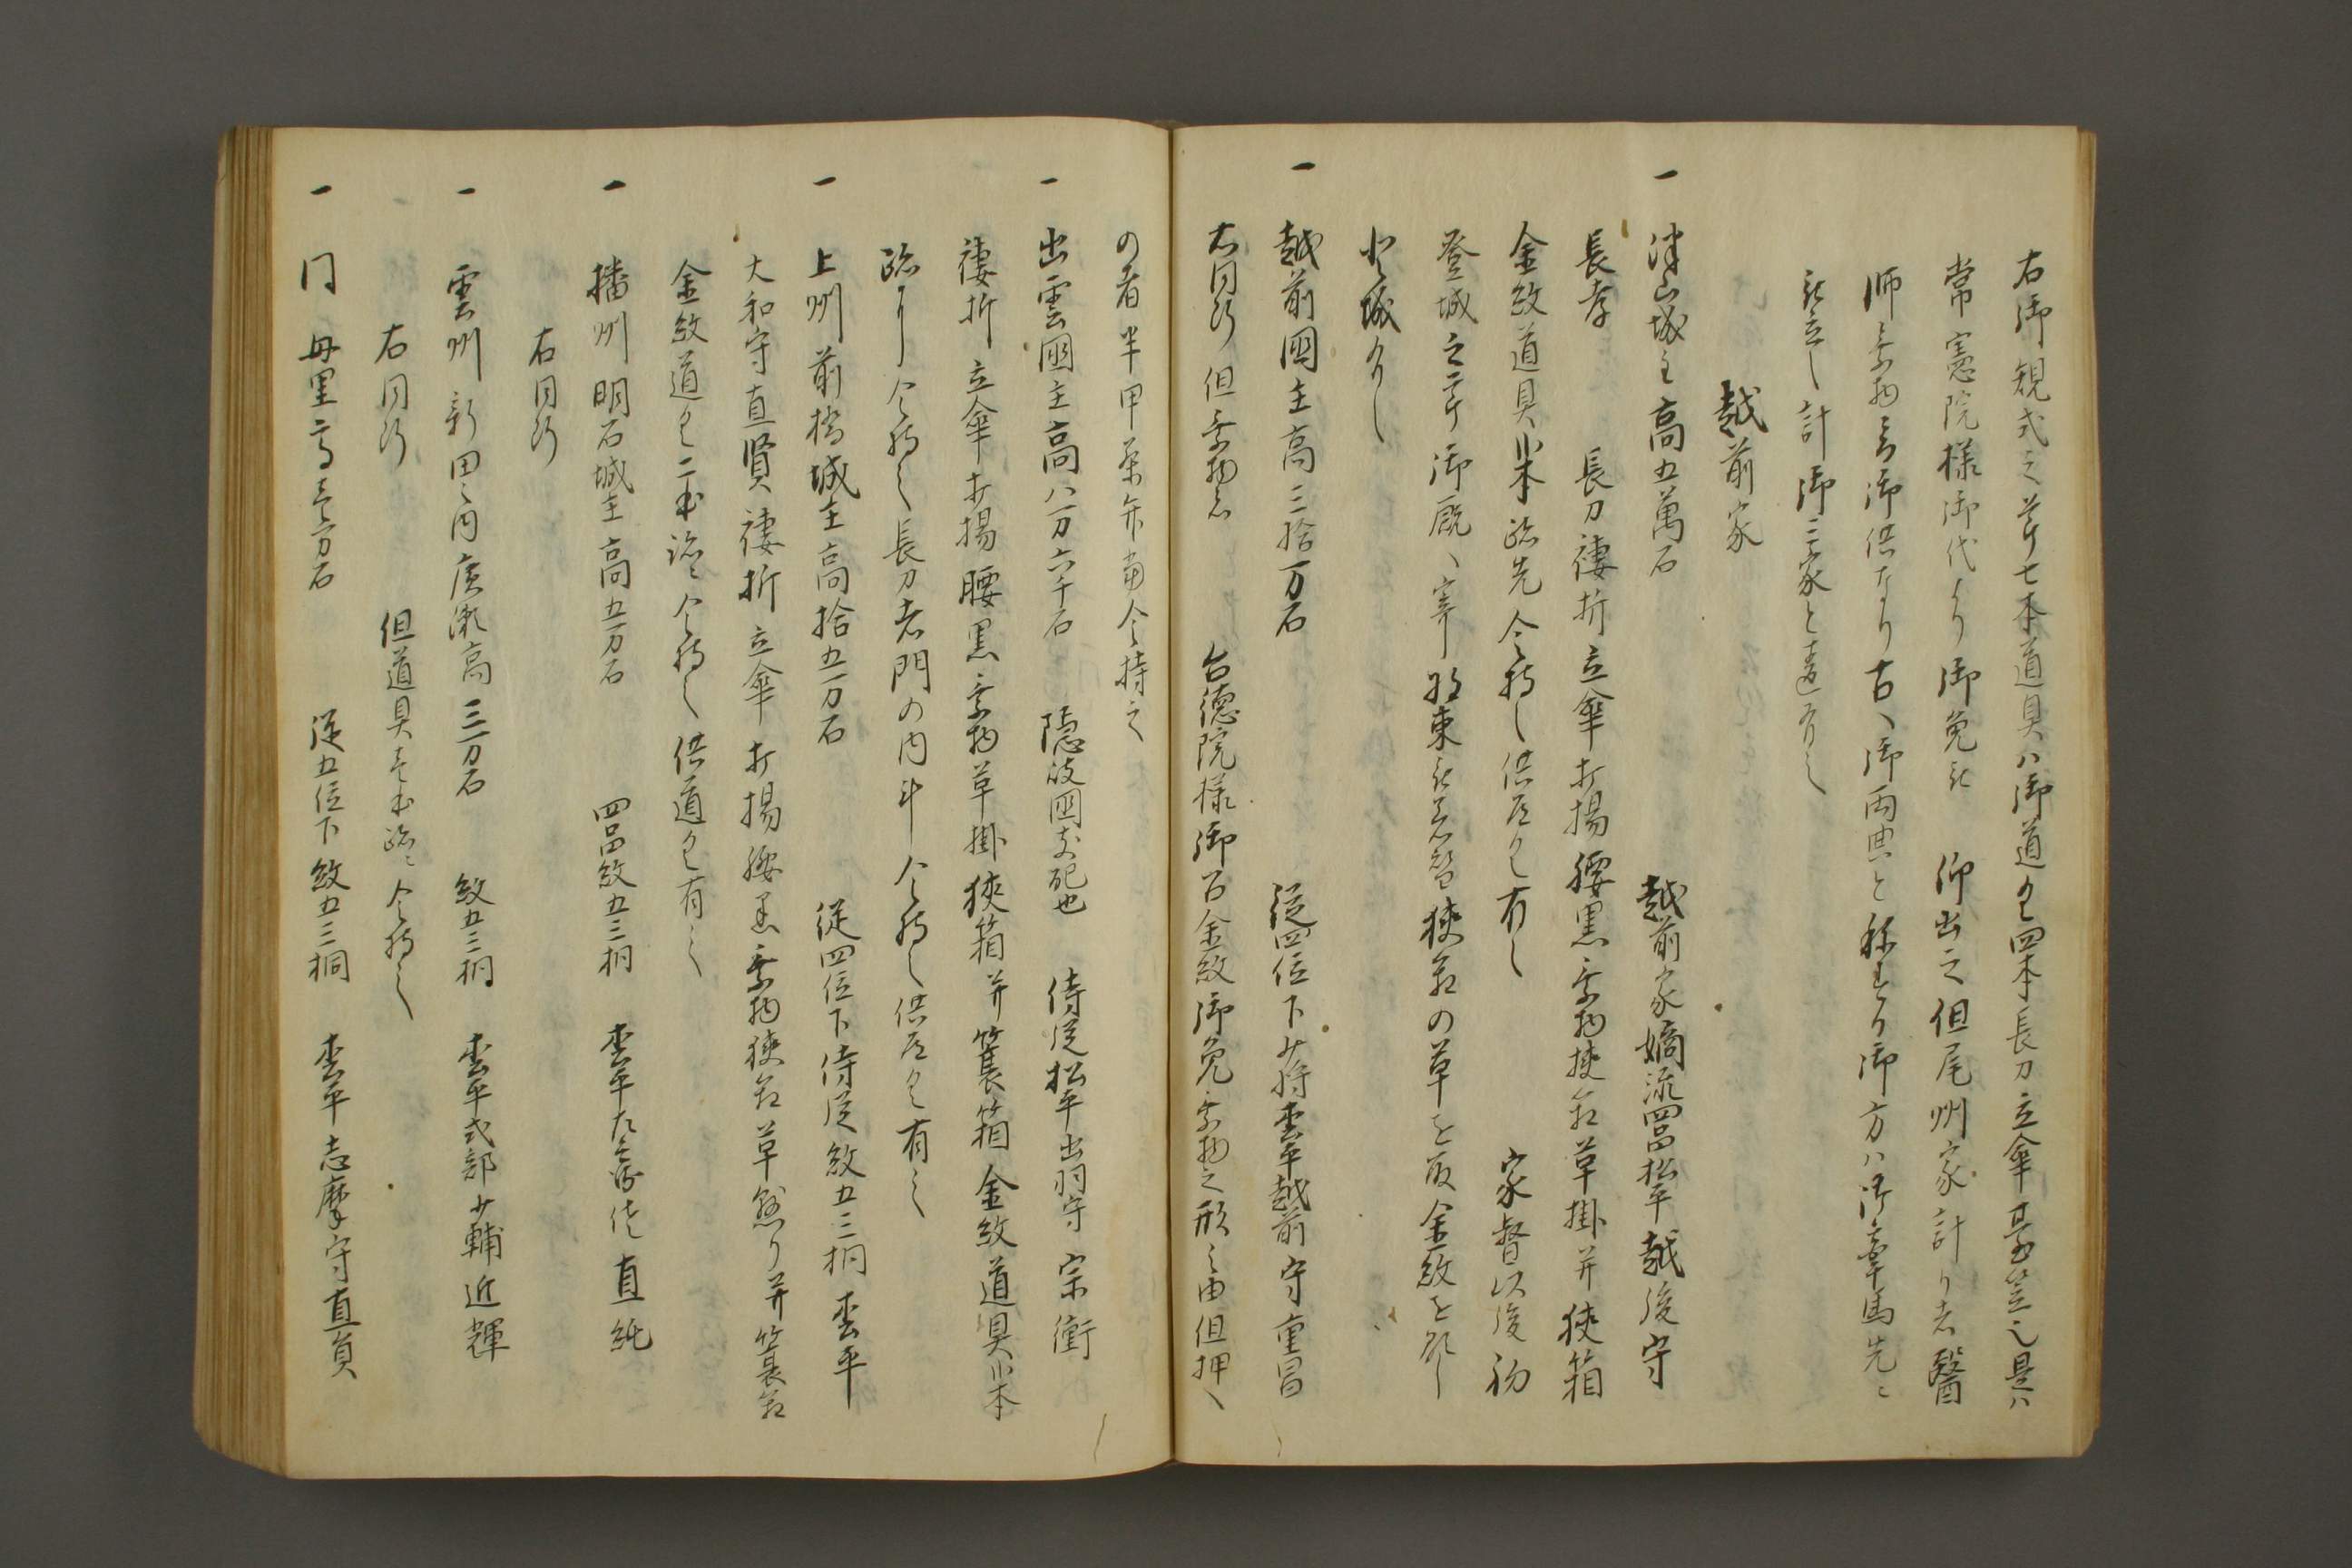 右御規式之節七本道具ハ御道具四本長刀立傘臺笠也是ハ
常憲院様御代より御免被 仰出之但尾州家計り者醫
師乗物ニ而御供なり古ハ御両典と称す御方ハ御牽馬先ニ
被立し計御三家と違有之
越前家
一 津山城主高五萬石 越前家嫡流四品松平越後守
長孝 長刀褄折立傘打揚腰黒乗物挟箱草掛并挟箱
金紋道具弐本跡先令持之供道具有之 家督以後初
登城之節御厩ニ寄装束被着替挟箱の草を取金紋を顕し
登城有し
一 越前国主高三拾万石 従四位下少将松平越前守重昌
右同断但乗物 台徳院様御召金紋御免乗物之形之由但押ヘ
の者半甲栗弁當令持之
一 出雲國主高拾八万六千石 隠岐国支配也 侍従松平出羽守宗衍
褄折立傘打揚腰黒乗物草掛挟箱并簑箱金紋道具弐本
跡ニ令持之長刀者門の内計令持之供道具有之
一 上州前橋城主高拾五万石 従四位下侍従紋五三桐松平
大和守直賢褄折立傘打揚腰黒乗物挟箱草懸り并簑箱
金紋道具二本跡ニ令持之供道具有之
一 播州明石城主高五万石 四品紋五三桐 松平左兵衛佐直純
右同断
一 雲州新田之内廣瀬高三万石 紋五三桐 松平式部少輔近輝
右同断 但道具壱本跡ニ令持之
一 同 母里高壱万石 従五位下紋五三桐 松平志摩守直員